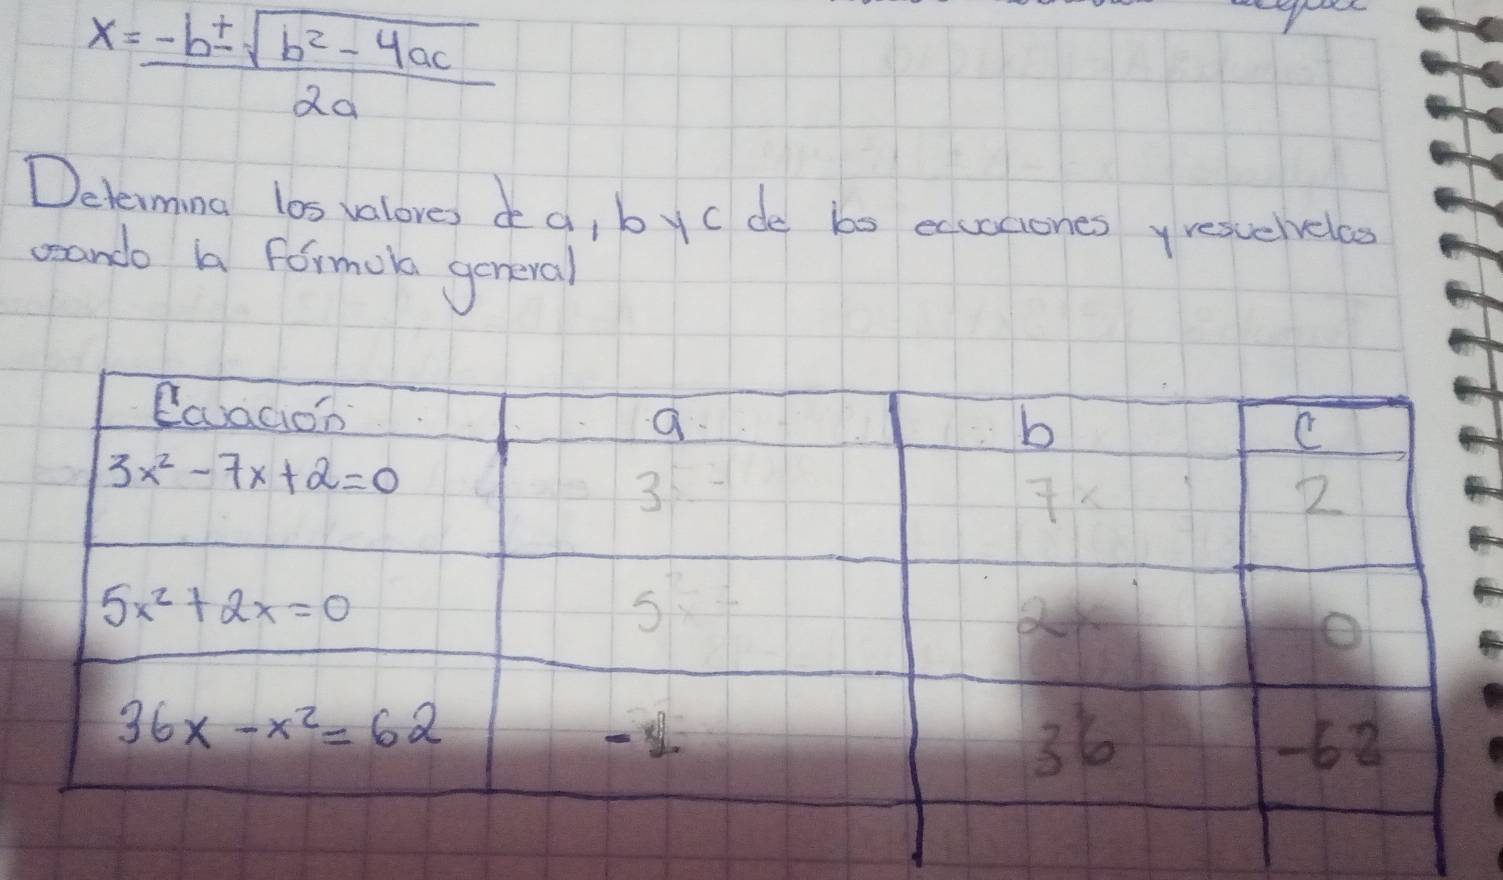 x = -b ± √b² - 4ac
2a
Determina los valores de a, b y c de las ecuaciones y resuelvelas
usando la fórmula general
Ecuación a b c
3x² - 7x + 2 = 0 3 7x 2
5x² + 2x = 0 5 2x 0
36x - x² = 62 -1 36 -62